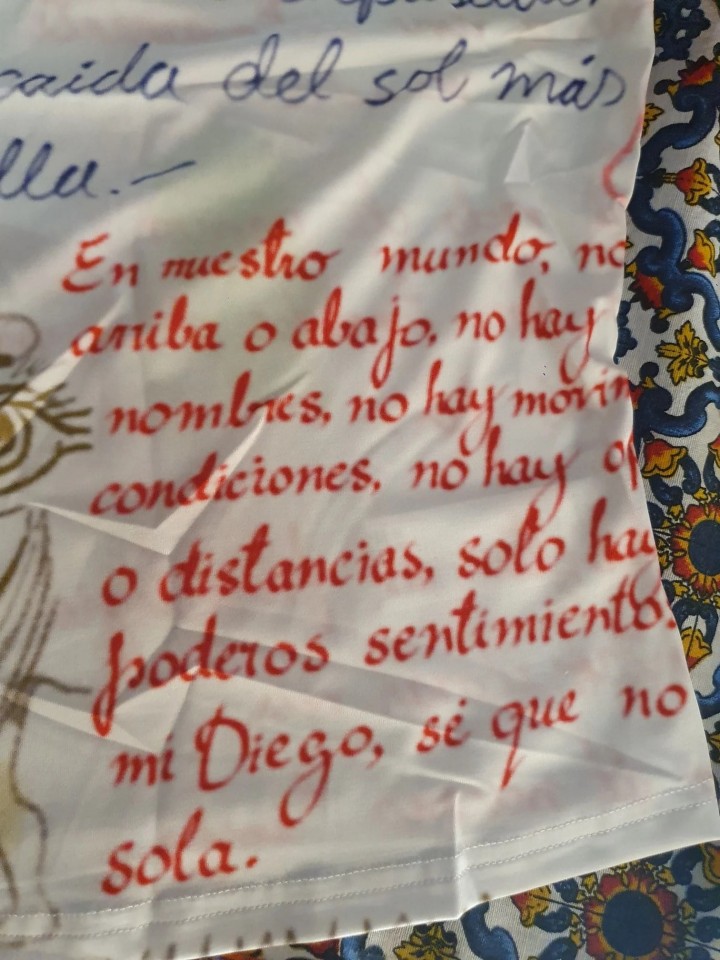 caida del sol más
En nuestro mundo, no
arriba o abajo, no hay
nombres, no hay
condiciones, no hay
o distancias, solo hay
poderos sentimiento
mi Diego, sé que no
sola.